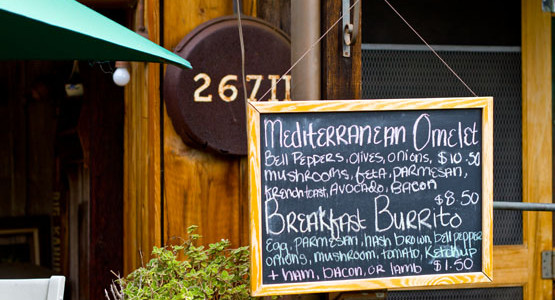 26711
Mediterranean Omelet
Bell Peppers, olives, onions, $10.50
mushrooms, feta, parmesan,
frenchtoast, Avocado, Bacon
$8.50
Breakfast Burrito
Egg, parmesan, hash brown, bell pepper
onions, mushroom, tomato, Ketchup
+ ham, bacon, or lamb $1.50